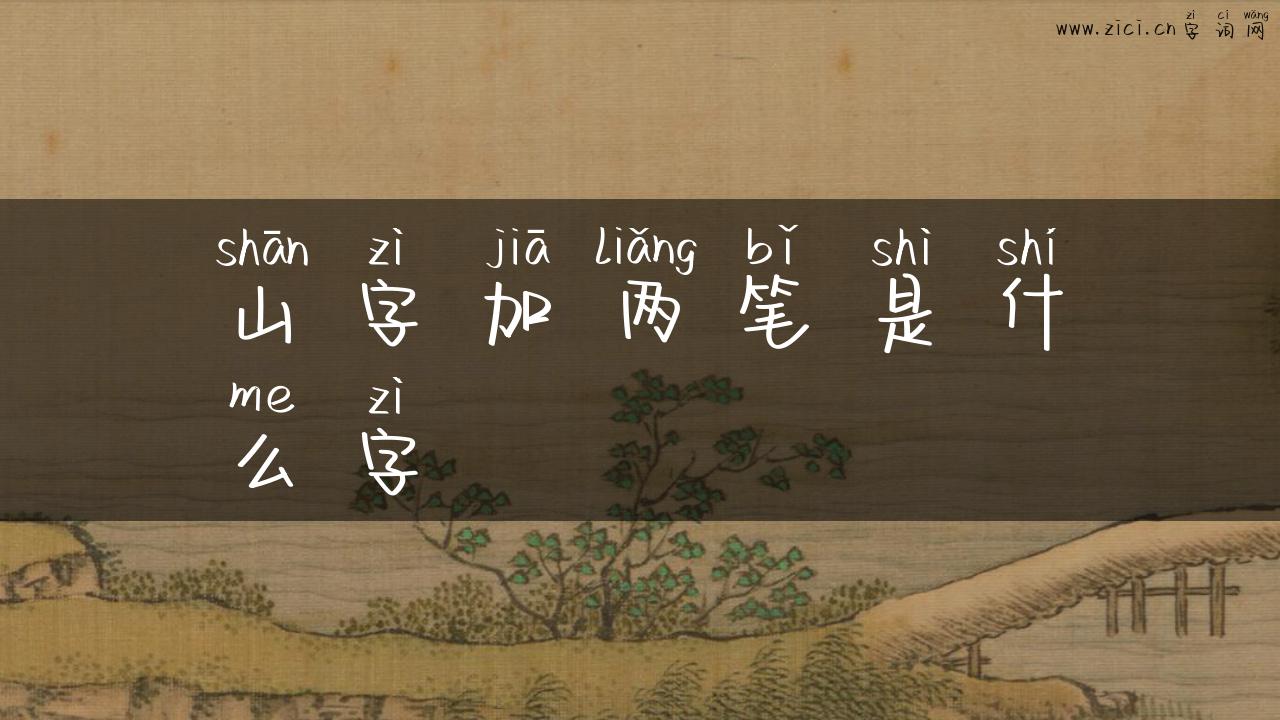 zì cí wǎng
www.zici.cn字词网
shān zì jiā liǎng bǐ shì shí
山字加两笔是什
me zì
么字